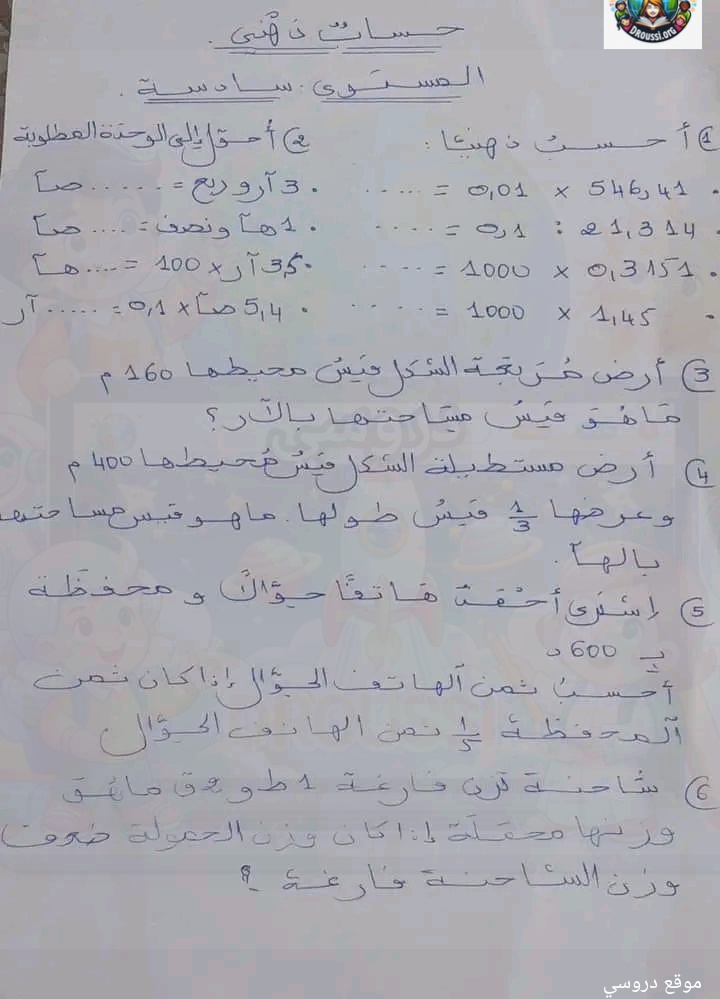 DRoussi.org
حساب ذهني.
المستوى: سادسة.
① أحسب ذهنيا:
546,41 × 0,01 = .....
21,314 : 0,1 = ....
0,3151 × 1000 = ....
1,45 × 1000 = ....
② أحول إلى الوحدة المطلوبة
3 آر وربع = ...... صآ
1 هآ ونصف = .... صآ
3,5 آر × 100 = .... هآ
5,4 صآ × 0,1 = ...... آر
③ أرض مربعة الشكل قيس محيطها 160 م
ما هو قيس مساحتها بالآر؟
④ أرض مستطيلة الشكل قيس محيطها 400 م
وعرضها 1/3 قيس طولها. ما هو قيس مساحتها
بالهآ.
⑤ إشترى أحمد هاتفا جوالا ومحفظة
بـ 600 د
أحسب ثمن الهاتف الجوال إذا كان ثمن
المحفظة 1/5 ثمن الهاتف الجوال
⑥ شاحنة تزن فارغة 1 ط و 2 ق ما هو
وزنها محملة إذا كان وزن الحمولة ضعف
وزن الشاحنة فارغة ؟
دروسي
موقع دروسي